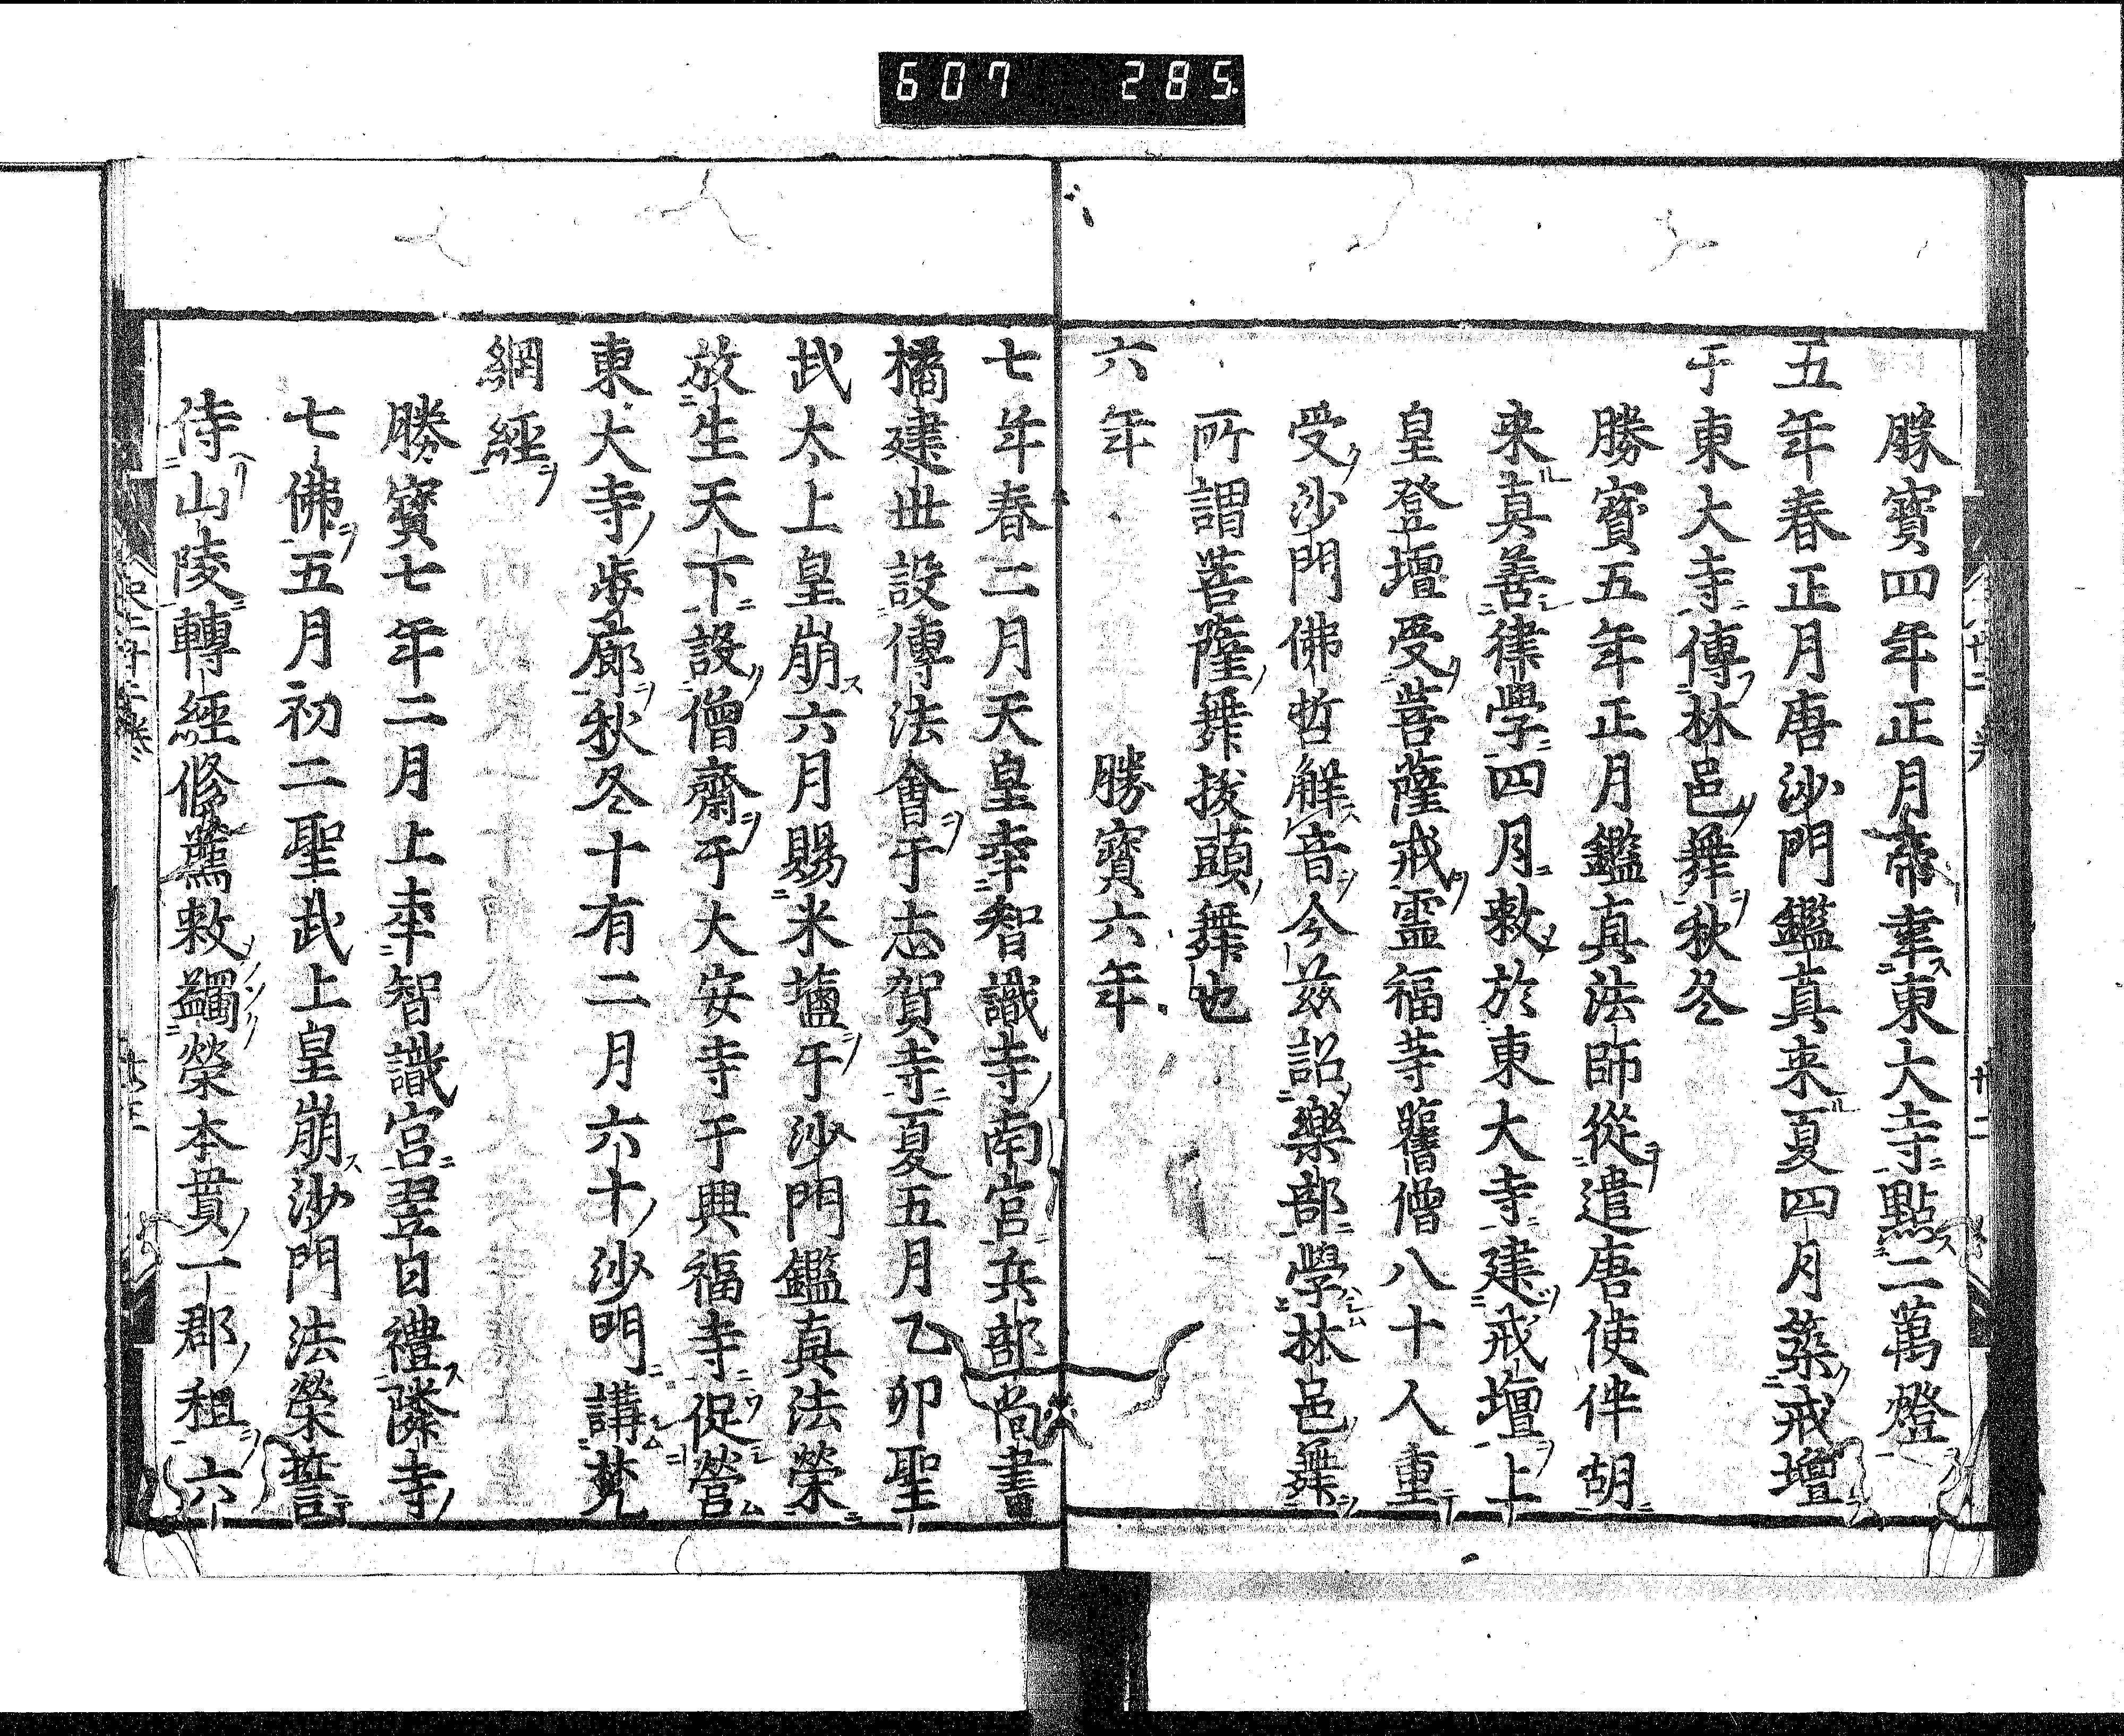 607 285
勝寳四年正月帝幸東大寺點二萬燈
五年春正月唐沙門鑑真来夏四月築戒壇
于東大寺傳林邑舞秋冬
勝寳五年正月鑑真法師從遣唐使伴胡
来真善律學四月敕於東大寺建戒壇上
皇登壇受菩薩戒霊福等舊僧八十人重
受沙門佛哲解音今兹詔樂部學林邑舞
所謂菩薩舞拔頭舞也
六年 勝寳六年
七年春二月天皇幸智識寺南宮兵部尚書
橘建世設傳法會于志賀寺夏五月乙卯聖
武太上皇崩六月賜米塩于沙門鑑真法榮
放生天下設僧齋于大安寺于興福寺促營
東大寺歩廊秋冬十有二月六十沙明講梵
網經
勝寳七年二月上幸智識宮翌日禮隣寺
七佛五月初二聖武上皇崩沙門法榮誓
侍山陵轉經修薦敕蠲榮本貫一郡租六